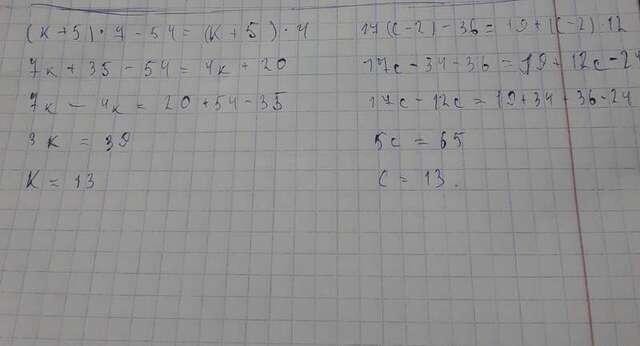 (к+5)·7-54=(к+5)·4
7к+35-54=4к+20
7к-4к=20+54-35
3к=39
К=13
17(с-2)-36=19+(с-2)·12
17с-34-36=19+12с-24
17с-12с=19+34+36-24
5с=65
с=13.